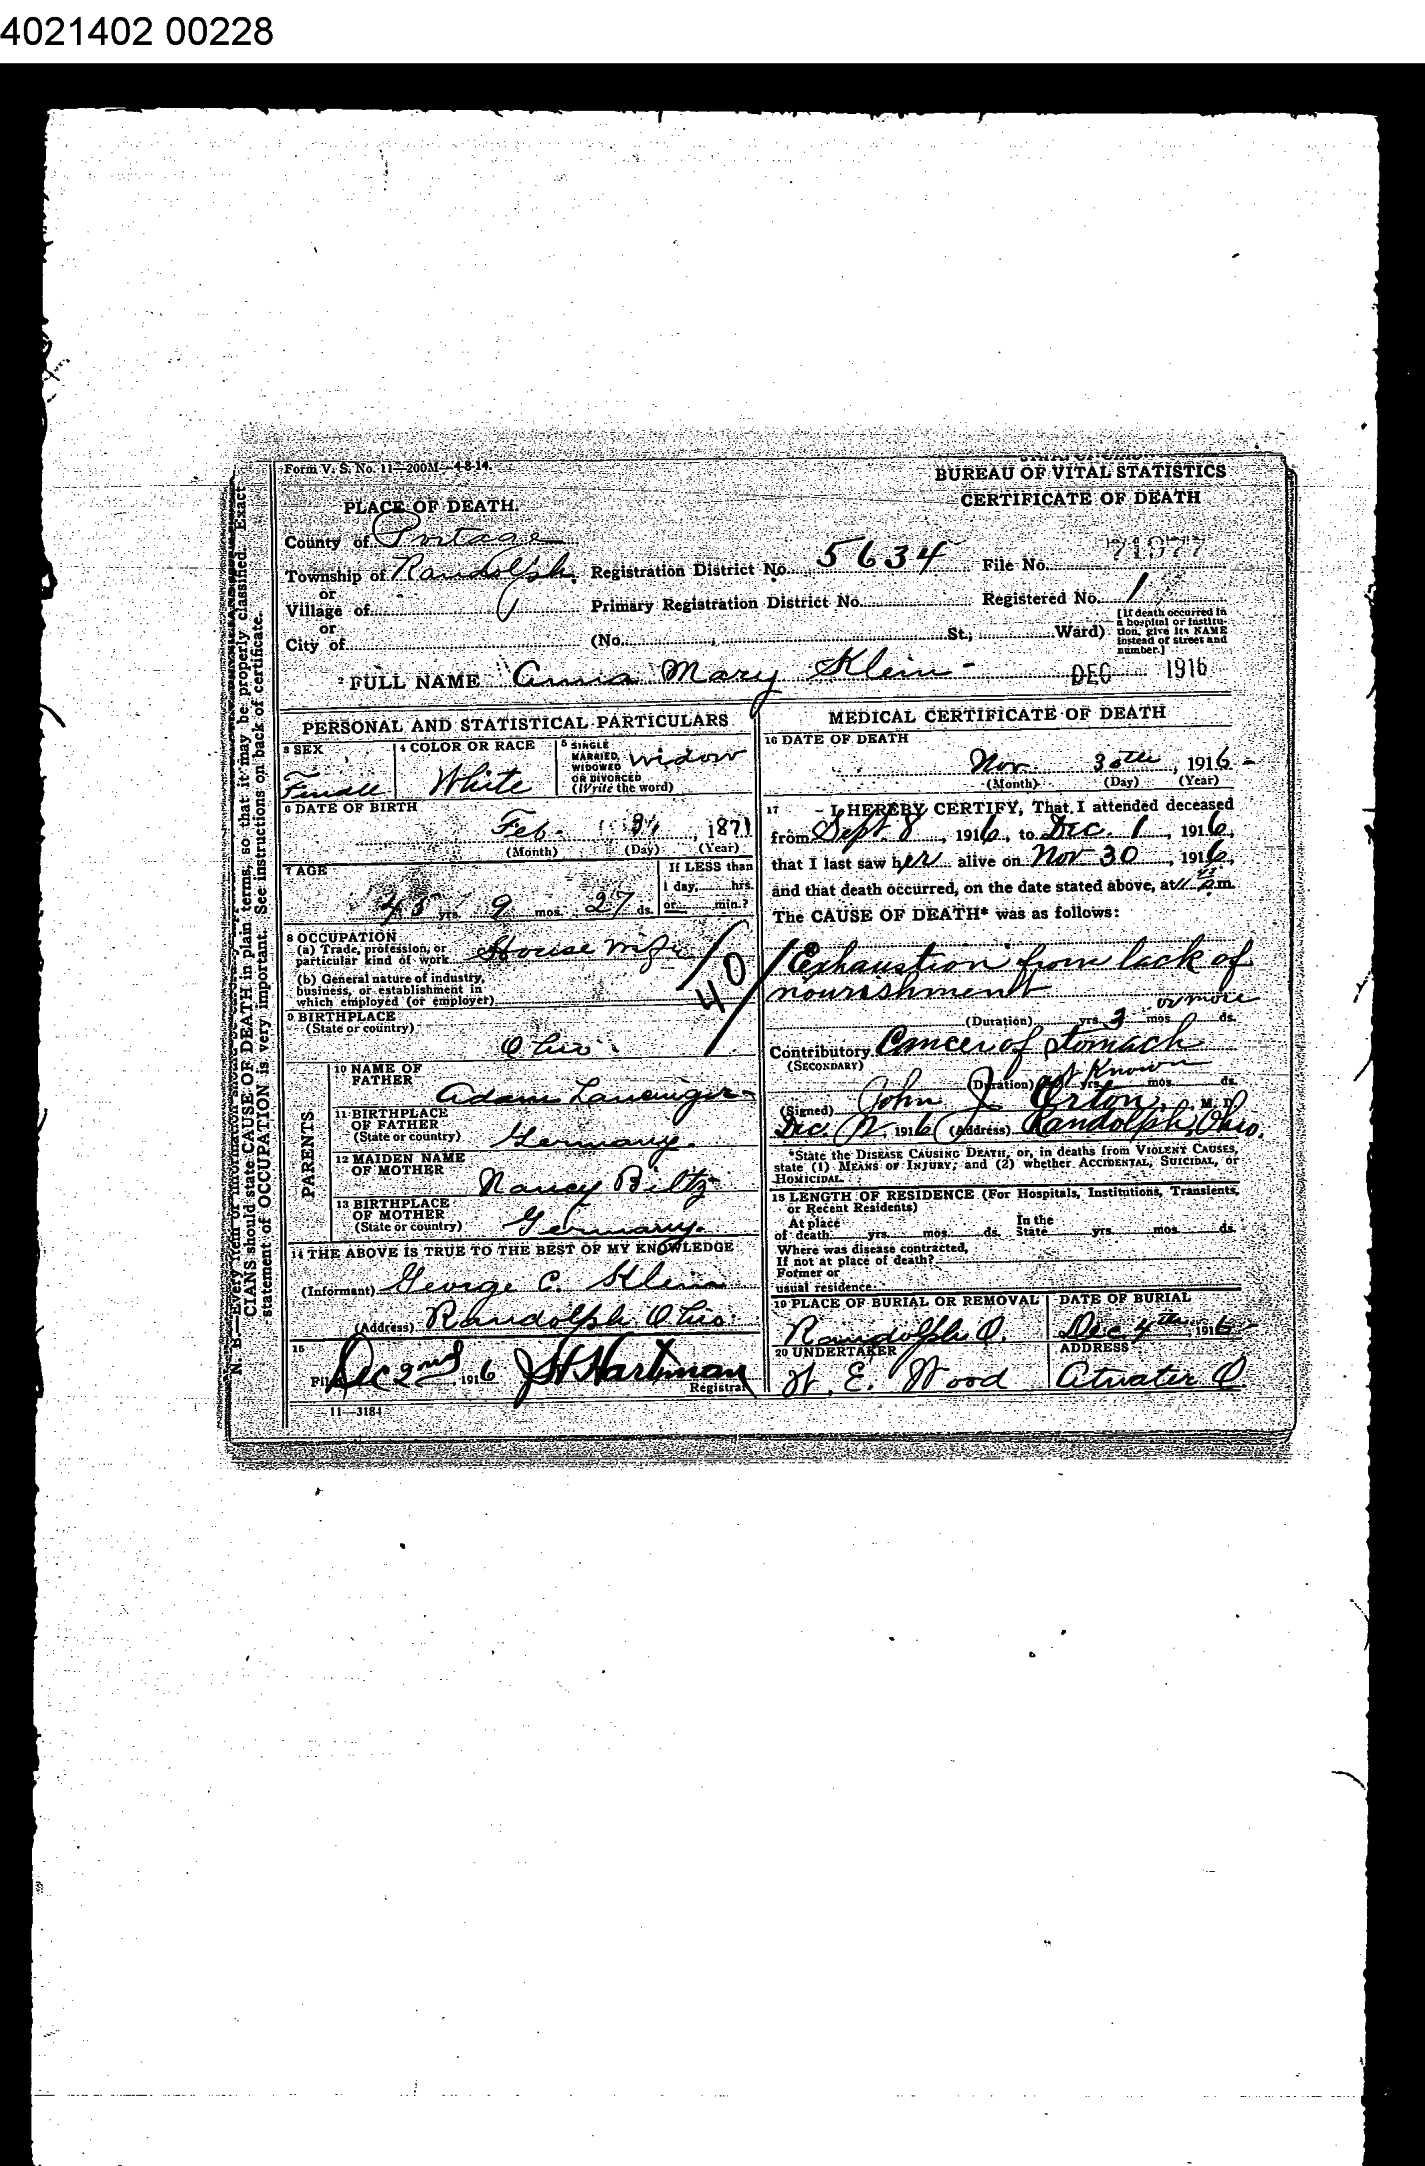 4021402 00228
Form V. S. No. 11—200M—4-8-14.
BUREAU OF VITAL STATISTICS
CERTIFICATE OF DEATH
PLACE OF DEATH.
County of Portage
Township of Randolph Registration District No. 5634 File No. 71977
or
Village of Primary Registration District No. Registered No. 1
or
City of (No. , St.; Ward) [If death occurred in a hospital or institution, give its NAME instead of street and number.]
2 FULL NAME Anna Mary Klein DEC 1916
PERSONAL AND STATISTICAL PARTICULARS
3 SEX Female
4 COLOR OR RACE White
5 SINGLE MARRIED, WIDOWED OR DIVORCED (Write the word) Widow
6 DATE OF BIRTH
Feb. , 1871
(Month) (Day) (Year)
7 AGE
45 yrs. 9 mos. 27 ds.
If LESS than 1 day, hrs. or min.?
8 OCCUPATION
(a) Trade, profession, or particular kind of work House wife
(b) General nature of industry, business, or establishment in which employed (or employer)
40
9 BIRTHPLACE
(State or country)
Ohio
PARENTS
10 NAME OF FATHER
Adam
11 BIRTHPLACE OF FATHER (State or country)
Germany.
12 MAIDEN NAME OF MOTHER
Nancy Biltz
13 BIRTHPLACE OF MOTHER (State or country)
Germany.
14 THE ABOVE IS TRUE TO THE BEST OF MY KNOWLEDGE
(Informant) George C. Klein
(Address) Randolph Ohio.
15
Dec 2nd, 1916 J H Hartman
Registrar
11—3184
MEDICAL CERTIFICATE OF DEATH
16 DATE OF DEATH
Nov. 30th, 1916
(Month) (Day) (Year)
17 I HEREBY CERTIFY, That I attended deceased
from Sept. 8, 1916, to Dec. 1, 1916,
that I last saw her alive on Nov 30, 1916,
and that death occurred, on the date stated above, at 11 p.m.
The CAUSE OF DEATH* was as follows:
Exhaustion from lack of
nourishment
or more
(Duration) yrs. 3 mos. ds.
Contributory Cancer of Stomach
(SECONDARY)
(Duration) Not Known yrs. mos. ds.
(Signed) John J. Orton, M. D.
Dec 2, 1916 (Address) Randolph, Ohio.
*State the DISEASE CAUSING DEATH, or, in deaths from VIOLENT CAUSES,
state (1) MEANS OF INJURY; and (2) whether ACCIDENTAL, SUICIDAL, or
HOMICIDAL.
18 LENGTH OF RESIDENCE (For Hospitals, Institutions, Transients,
or Recent Residents)
At place of death yrs. mos. ds. In the State yrs. mos. ds.
Where was disease contracted,
If not at place of death?
Former or
usual residence
19 PLACE OF BURIAL OR REMOVAL
Randolph O.
DATE OF BURIAL
Dec. 4th, 1916
20 UNDERTAKER
H. E. Wood
ADDRESS
Atwater O
CIANS should state CAUSE OF DEATH in plain terms, so that it may be properly classified. Exact
statement of OCCUPATION is very important. See instructions on back of certificate.